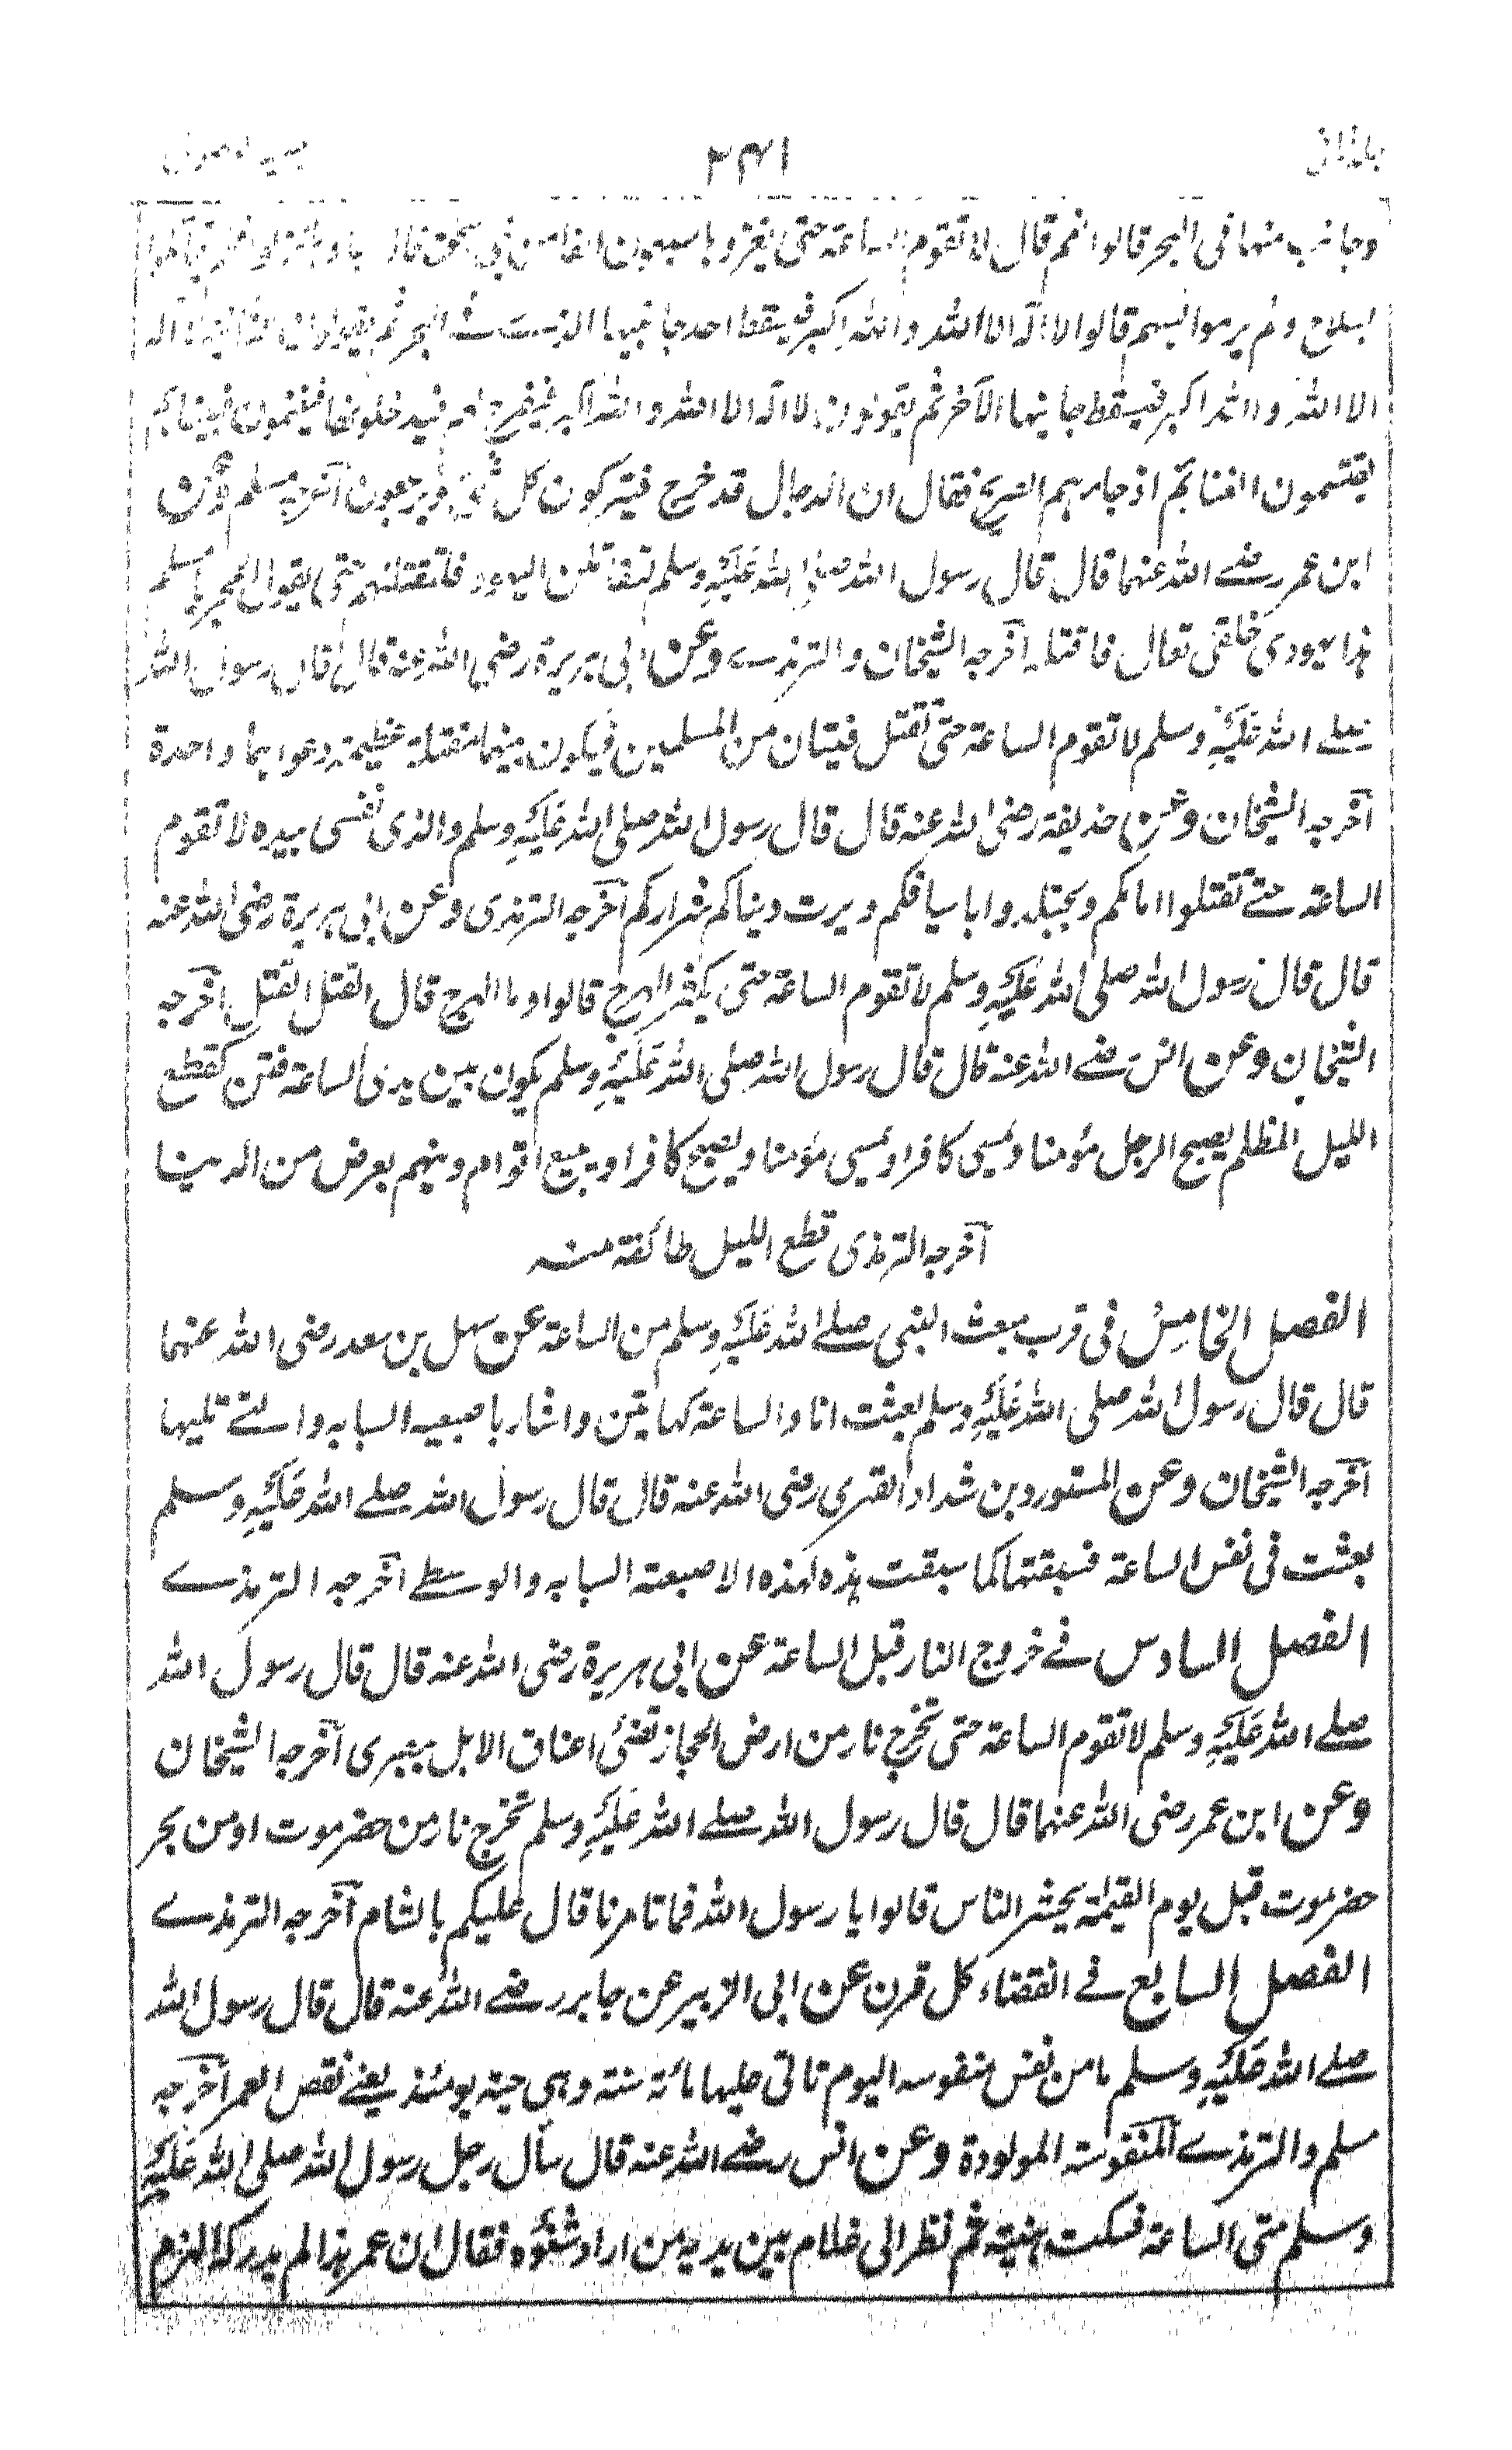 ٢٣١
وجانب منها فى البحر قالوا نعم قال لا تقوم الساعة حتى يغزوها سبعون الفا من بنى اسحق فاذا جاؤها نزلوا فلم يقاتلوا
بسلاح ولم يرموا بسهم قالوا لا اله الا الله والله اكبر فيسقط احد جانبيها الذى فى البحر ثم يقولون الثانية لا اله
الا الله والله اكبر فيسقط جانبها الآخر ثم يقولون لا اله الا الله والله اكبر فيفرج لهم فيدخلونها فيغنمون فبينما هم
يقتسمون الغنائم اذ جاءهم الصريخ فقال ان الدجال قد خرج فيتركون كل شئ ويرجعون آخرجه مسلم وعن
ابن عمر رضے الله عنهما قال قال رسول الله صلى الله عَلَيْهِ وسلم لتقاتلن اليهود فلتقتلنهم حتى يقول الحجر يا مسلم
هذا يهودى خلفى تعال فاقتله آخرجه الشيخان والترمذے وعن ابى هريرة رضى الله عنه قال قال رسول الله
صلے الله عَلَيْهِ وسلم لا تقوم الساعة حتى تقتتل فيتان من المسلمين فيكون بينهما مقتلة عظيمة دعواهما واحدة
آخرجه الشيخان وعن حذيفة رضى الله عنه قال قال رسول الله صلى الله عَلَيْهِ وسلم والذى نفسى بيده لا تقوم
الساعة حتے تقتلوا امامكم وتجتلدوا باسيافكم ويرث دنياكم شراركم آخرجه الترمذى وعن ابى هريرة رضى الله عنه
قال قال رسول الله صلى الله عَلَيْهِ وسلم لا تقوم الساعة حتى يكثر الهرج قالوا وما الهرج قال القتل القتل آخرجه
الشيخان وعن انس رضے الله عنه قال قال رسول الله صلى الله عَلَيْهِ وسلم يكون بين يدى الساعة فتن كقطع
الليل المظلم يصبح الرجل مؤمنا ويمسى كافرا ويمسى مؤمنا ويصبح كافرا ويبيع اقوام دينهم بعرض من الدنيا
آخرجه الترمذى قطع الليل طائفة منه
الفصل الخامِسُ فى قرب مبعث النبى صلے الله عَلَيْهِ وسلم من الساعة عن سهل بن سعد رضى الله عنهما
قال قال رسول الله صلى الله عَلَيْهِ وسلم بعثت انا والساعة كهاتين واشار باصبعيه السبابه والتے تليها
آخرجه الشيخان وعن المستورد بن شداد القهرى رضى الله عنه قال قال رسول الله صلے الله عَلَيْهِ وسلم
بعثت فى نفس الساعة فسبقتها كما سبقت هذه لهذه الاصبعته السبابه والوسطے آخرجه الترمذے
الفصل السادس فے خروج النار قبل الساعة عن ابى هريرة رضى الله عنه قال قال رسول الله
صلے الله عَلَيْهِ وسلم لا تقوم الساعة حتى تخرج نار من ارض الحجاز تضئى اعناق الابل ببصرى آخرجه الشيخان
وعن ابن عمر رضى الله عنهما قال قال رسول الله صلے الله عَلَيْهِ وسلم تخرج نار من حضرموت او من بحر
حضرموت قبل يوم القيمة يحشر الناس قالوا يا رسول الله فما تامرنا قال عليكم بالشام آخرجه الترمذے
الفصل السابع فے انقضاء كل قرن عن ابى الزبير عن جابر رضے الله عنه قال قال رسول الله
صلے الله عَلَيْهِ وسلم ما من نفس منفوسه اليوم تاتى عليها مائة سنته وهى حية يومئذ يعنے نقص العمر آخرجه
مسلم والترمذے المنفوسته المولودة وعن انس رضے الله عنه قال سأل رجل رسول الله صلى الله عَلَيْهِ
وسلم متى الساعة فسكت هنيئة ثم نظر الى غلام بين يديه من ازد شنوءه فقال ان عمر هذا لم يدركه الهرم